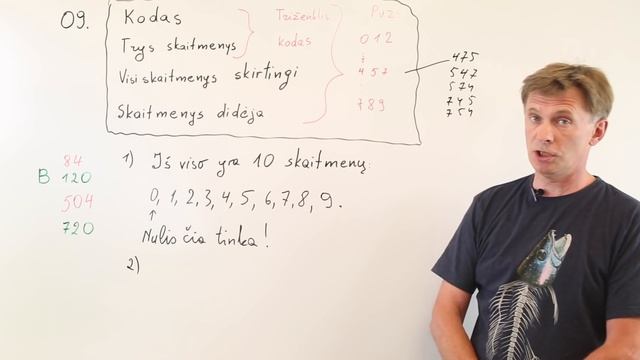 09.
Kodas
Trys skaitmenys
Visi skaitmenys skirtingi
Skaitmenys didėja
Triženklis
kodas
Pvz:
012
457
789
475
547
574
745
754
84
B 120
504
720
1) Iš viso yra 10 skaitmenų:
0, 1, 2, 3, 4, 5, 6, 7, 8, 9.
Nulis čia tinka!
2)